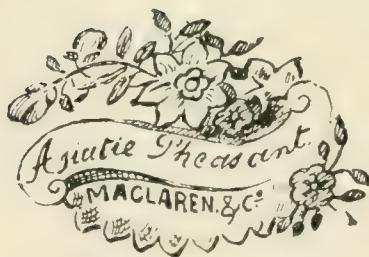 Asiatic Pheasant.
MACLAREN. & Co.